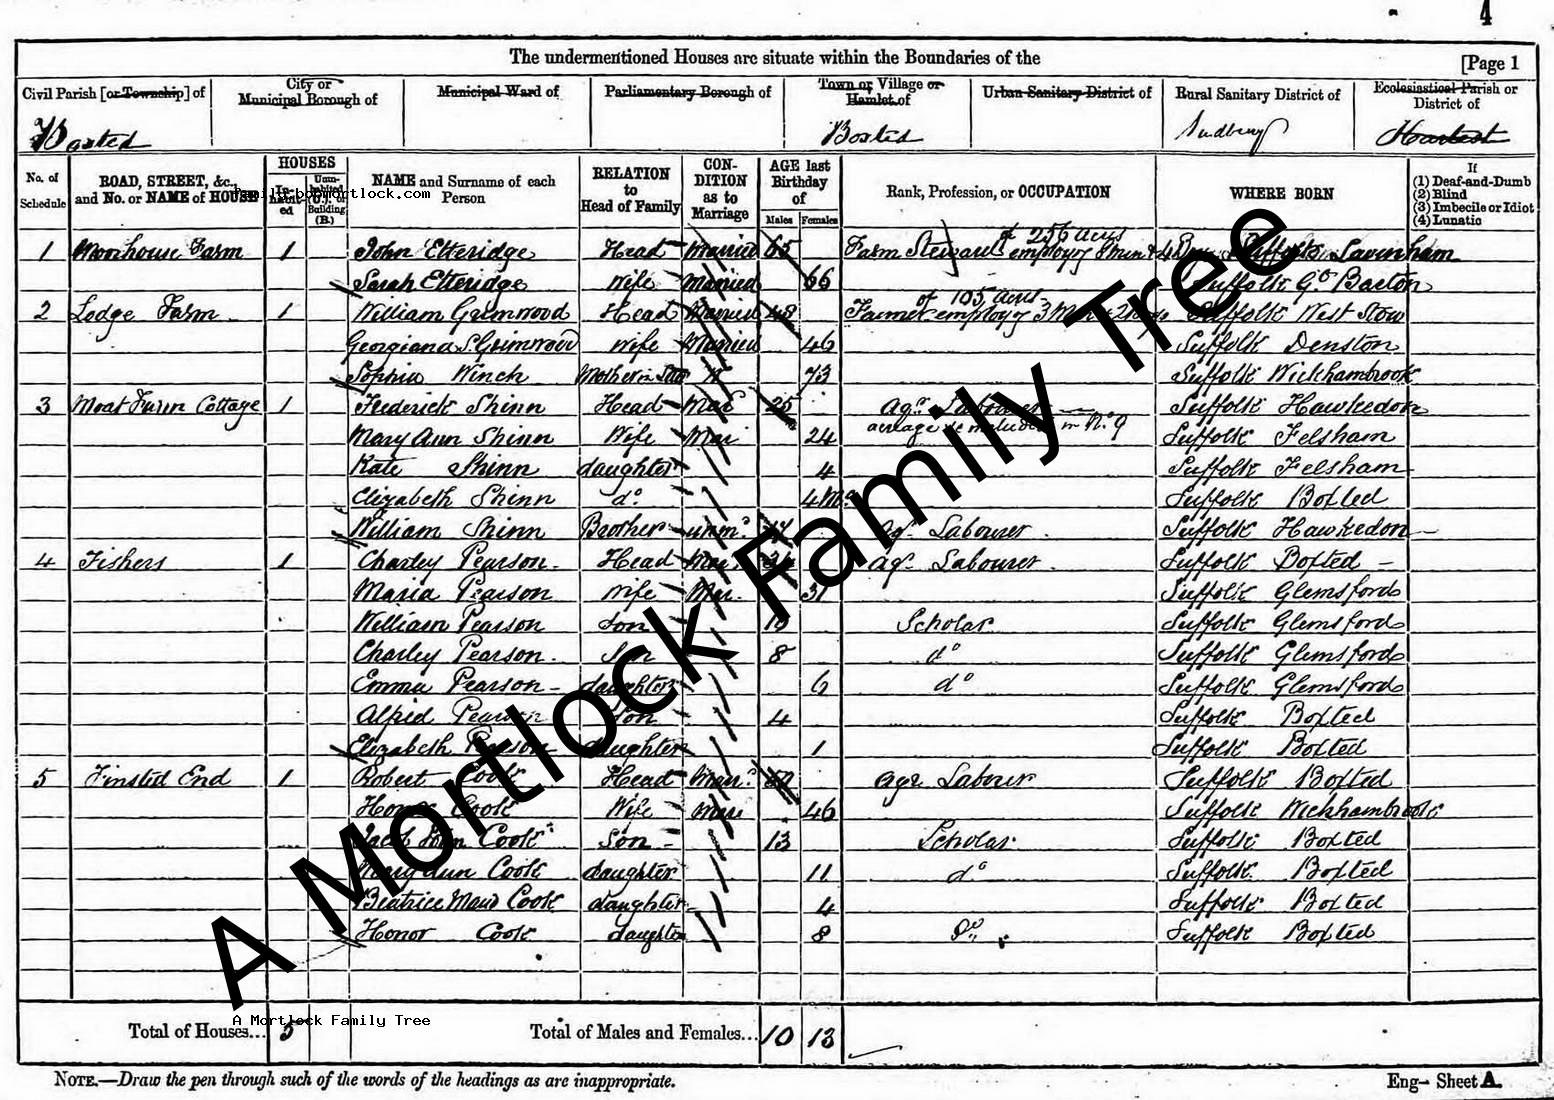 4
The undermentioned Houses are situate within the Boundaries of the [Page 1
Civil Parish [or Township] of City or Municipal Borough of Municipal Ward of Parliamentary Borough of Town or Village or Hamlet of Urban Sanitary District of Rural Sanitary District of Ecclesiastical Parish or District of
Boxted Boxted Sudbury Hartest
No. of Schedule ROAD, STREET, &c., and No. or NAME of HOUSE HOUSES Inhabited Uninhabited (U.), or Building (B.) NAME and Surname of each Person RELATION to Head of Family CONDITION as to Marriage AGE last Birthday of Males Females Rank, Profession, or OCCUPATION WHERE BORN If (1) Deaf-and-Dumb (2) Blind (3) Imbecile or Idiot (4) Lunatic
family.bobmortlock.com
of 256 acres
1 Moorhouse Farm 1 John Etteridge Head Married 65 Farm Steward employg 8 men & 4 Boys Suffolk Lavenham
Sarah Etteridge Wife Married 66 Suffolk Gt Barton
of 105 acres
2 Lodge Farm 1 William Grimwood Head Married 48 Farmer employg 3 Men 2 Boys Suffolk West Stow
Georgiana S. Grimwood Wife Married 46 Suffolk Denston
Sophia Winch Mother in Law W 73 Suffolk Wickhambrook
3 Moat Farm Cottage 1 Frederick Shinn Head Mar 25 Agr Labourer Suffolk Hawkedon
acreage is included in No. 9
Mary Ann Shinn Wife Mar 24 Suffolk Felsham
Kate Shinn daughter 4 Suffolk Felsham
Elizabeth Shinn do 4 Mo Suffolk Boxted
William Shinn Brother unmd Agr Labourer Suffolk Hawkedon
4 Fishers 1 Charley Pearson Head Mar. Agr Labourer Suffolk Boxted
Maria Pearson Wife Mar. 31 Suffolk Glemsford
William Pearson Son 10 Scholar Suffolk Glemsford
Charley Pearson Son 8 do Suffolk Glemsford
Emma Pearson daughter 6 do Suffolk Glemsford
Alfred Pearson Son 4 Suffolk Boxted
Elizabeth Pearson daughter 1 Suffolk Boxted
5 Finsted End 1 Robert Cook Head Marr. Agr Labour Suffolk Boxted
Honor Cook Wife Marr 46 Suffolk Wickhambrook
Jacob John Cook Son 13 Scholar Suffolk Boxted
Mary Ann Cook daughter 11 do Suffolk Boxted
Beatrice Maud Cook daughter 4 Suffolk Boxted
Honor Cook daughter 8 Do Suffolk Boxted
A Mortlock Family Tree
A Mortlock Family Tree
Total of Houses... 5 Total of Males and Females... 10 13
NOTE.—Draw the pen through such of the words of the headings as are inappropriate. Eng— Sheet A.